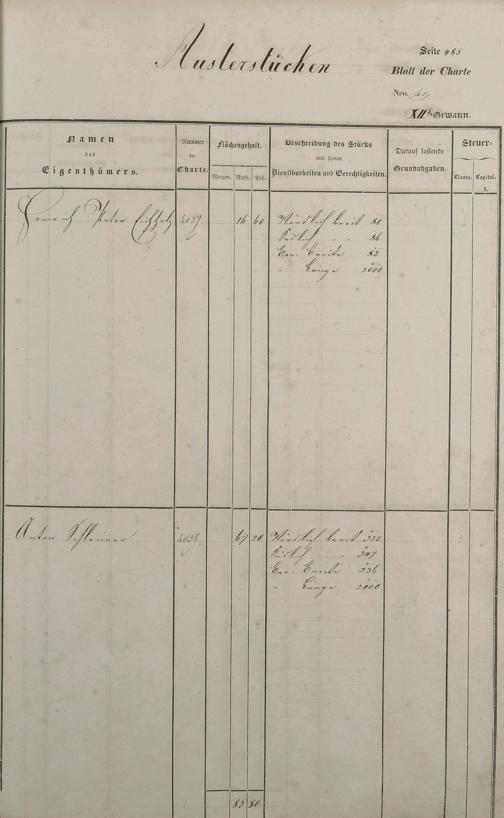 Austerstücken
Seite 485
Blatt der Charte
Nro.
XIIte Gewann.
Namen
des
Eigenthümers.
Nummer
der
Charte.
Flächengehalt.
Morgen. Ruth. Fuß.
Beschreibung des Stücks
mit seinen
Dienstbarkeiten und Gerechtigkeiten.
Darauf lastende
Grundabgaben.
Steuer-
Classe. Capital.
fl.
Heinrich Peter Eichholz 3037 16 60 Nördlich breit 80
Südlich " " 86
Ger. Breite 83
" Länge 2000
Anton Schleiner 3038 67 20 Nördlich breit
Südlich
Ger. Breite 336
" Länge 2000
83 80